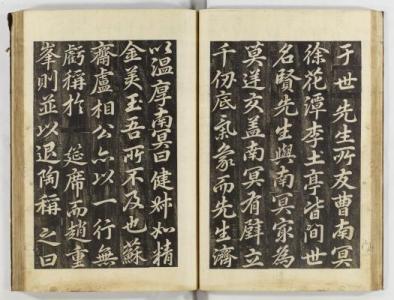 于世先生所友曹南冥
徐花潭李土亭皆間世
名賢先生與南冥冣為
莫逆交盖南冥有壁立
千仞底氣象而先生濟
以温厚南冥曰健叔如精
金美玉吾所不及也蘇
齋盧相公亦以一行無
虧稱於 筵席而趙重
峯則並以退陶稱之曰